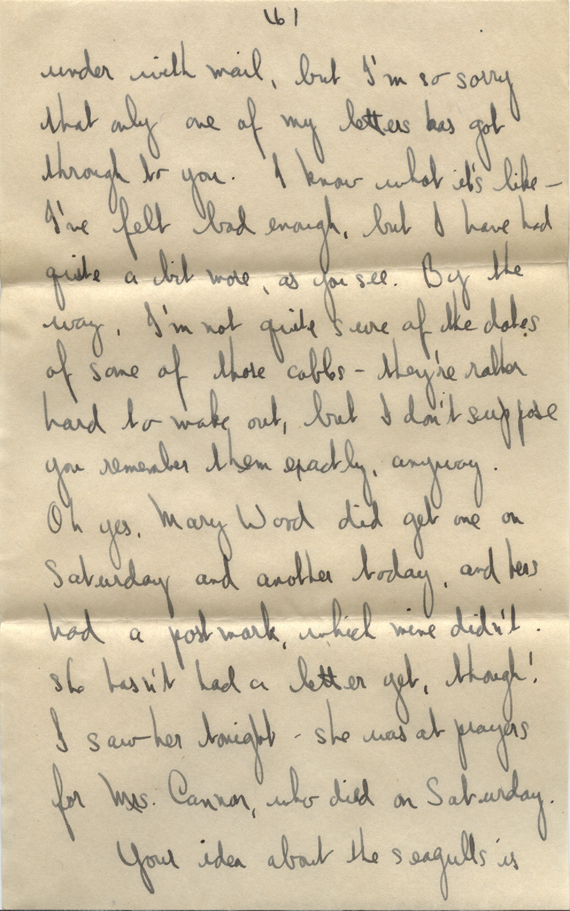 161
under with mail, but I'm so sorry
that only one of my letters has got
through to you. I know what it's like –
I've felt bad enough, but I have had
quite a bit more, as you see. By the
way, I'm not quite sure of the dates
of some of those cables – they're rather
hard to make out, but I don't suppose
you remember them exactly, anyway.
Oh yes, Mary Word did get one on
Saturday and another today, and hers
had a postmark, which mine didn't.
She hasn't had a letter yet, though!
I saw her tonight – she was at prayers
for Mrs. Cannon, who died on Saturday.
Your idea about the seagulls is